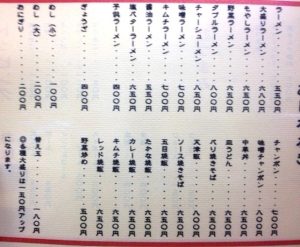 ラーメン……五五〇円
大盛りラーメン
もやしラーメン
野菜ラーメン……六五〇円
ダブルラーメン
チャーシューメン……八〇〇円
味噌ラーメン……七〇〇円
キムチラーメン……七〇〇円
醤油ラーメン……五五〇円
塩バターラーメン……六五〇円
子供ラーメン……四〇〇円
ぎょうざ……四〇〇円
めし（大）……一〇〇円
めし（小）
おにぎり……二〇〇円
チャンポン……七〇〇円
味噌チャンポン……八〇〇円
中華丼……六五〇円
皿うどん……六五〇円
バリ焼きそば……六五〇円
天津飯……八〇〇円
ソース焼きそば……六五〇円
五目焼飯……六五〇円
たかな焼飯……六五〇円
カレー焼飯……六五〇円
キムチ焼飯……六五〇円
レッド焼飯……六五〇円
野菜炒め……五〇〇円
替え玉……一八〇円
◎各種大盛りは一五〇円アップ
になります。